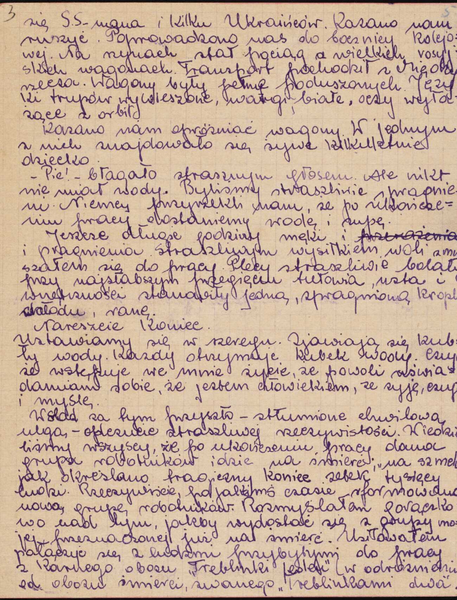 3
się SS-mana i kilku Ukraińców. Kazano nam
ruszyć. Poprowadzono nas do bocznicy kolejo-
wej. Na szynach stał pociąg o wielkich rosyj-
skich wagonach. Transport pochodził z Międzyrzecza
Wagony były pełne poduszonych. Języ-
ki trupów wywieszone, wargi białe, oczy wyłażące
z orbit.
Kazano nam opróżniać wagony. W jednym
z nich znajdowało się żywe kilkuletnie
dziecko.
- Pić! - błagało strasznym głosem. Ale nikt
nie miał wody. Byliśmy straszliwie spragnie-
ni. Niemcy przyrzekli nam, że po ukończe-
niu pracy dostaniemy wodę i zupę.
Jeszcze długie godziny męki i
i pragnienia. Straszliwym wysiłkiem woli zmu-
szałem się do pracy. Plecy straszliwie bolały
przy najsłabszym przegięciu tułowia, usta i
wnętrzności stanowiły jedną, spragnioną kropli
chłodu, ranę.
Nareszcie koniec.
Ustawiamy się w szeregu. Zjawiają się kub-
ły wody. Każdy otrzymuje kubek wody. Czuję
że wstępuje we mnie życie, że powoli uświa-
damiam sobie, że jestem człowiekiem, że żyję, czuję
i myślę.
Wślad za tym przyszło - stłumione chwilową
ulgą, - odczucie straszliwej rzeczywistości. Wiedzie-
liśmy wszyscy, że po ukończeniu pracy dana
grupa robotników idzie na śmierć, "na szmelc"
jak określano tragiczny koniec setek tysięcy
ludzi. Rzeczywiście, po jakimś czasie sformowano
nową grupę robotników. Rozmyślałem gorączko-
wo nad tym, jakby wydostać się z grupy mo-
jej przeznaczonej już na śmierć. Usiłowałem
połączyć się z ludźmi przybyłymi do pracy
z Karnego obozu "Treblinki jeden" (w odróżnieniu
od obozu śmierci, zwanego "Treblinkami dwa".